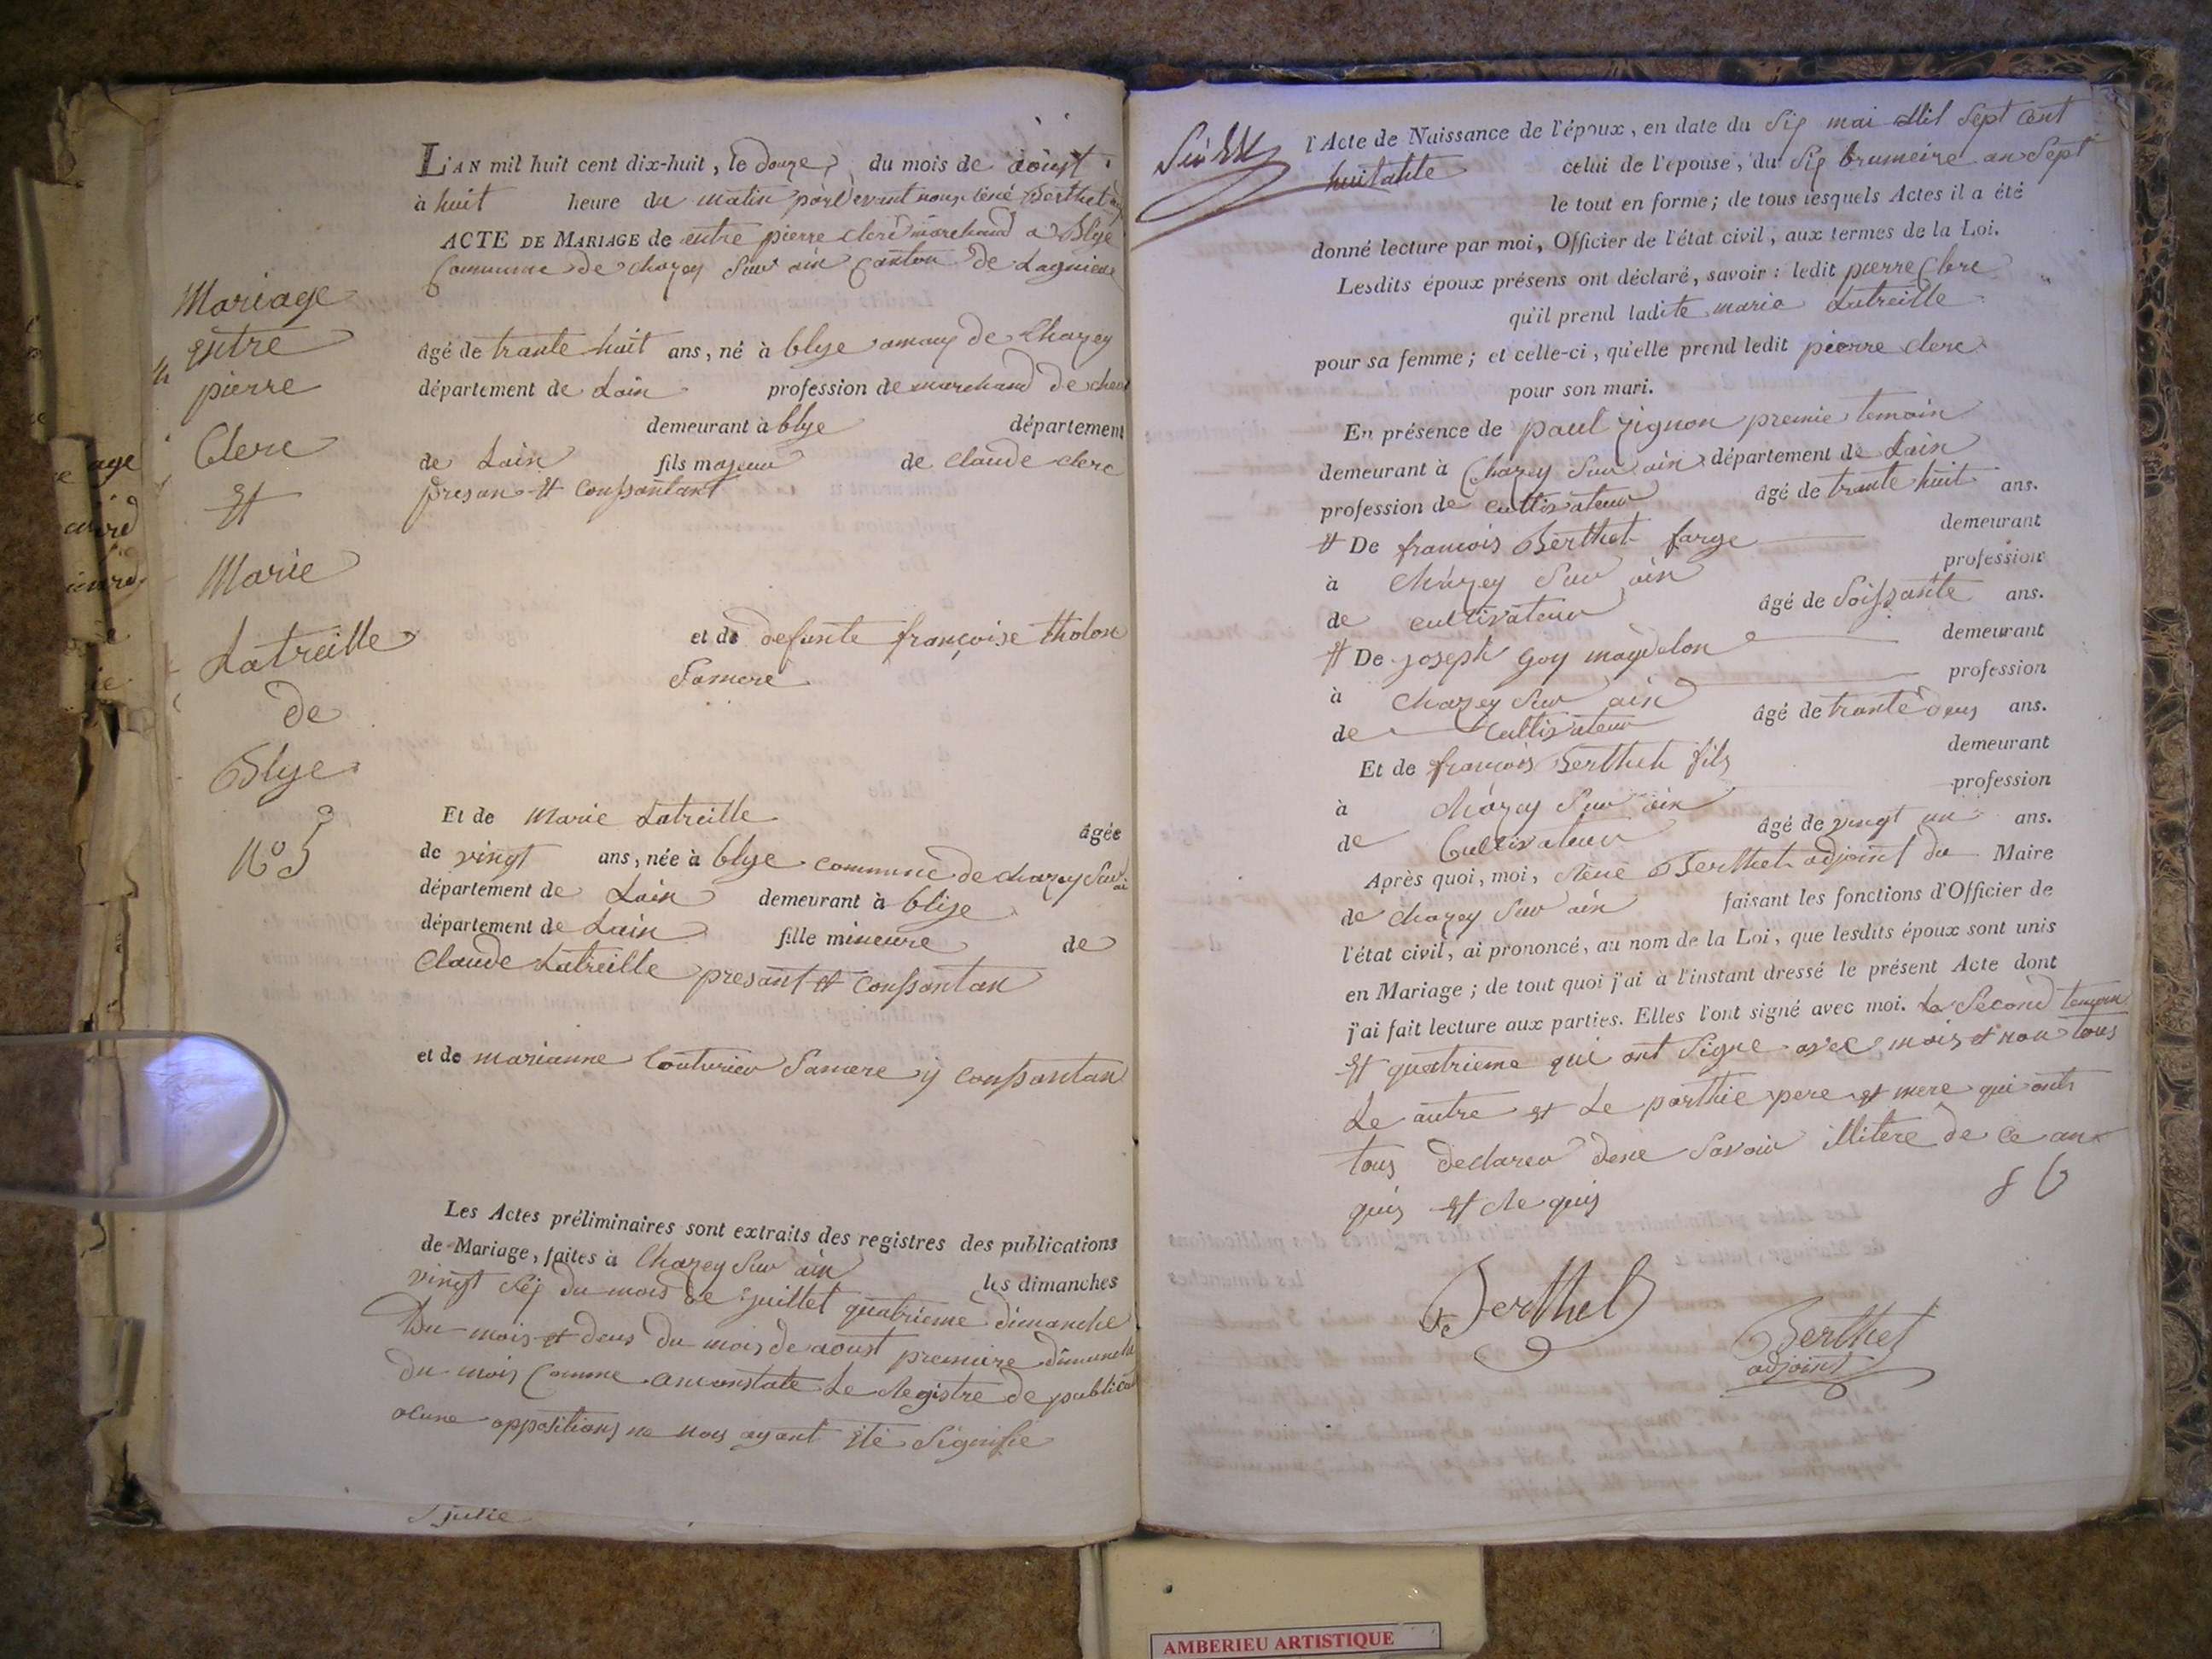 Mariage
entre
pierre
Clerc
Et
Marie
Latreille
de
Blye
No 5
L'AN mil huit cent dix-huit, le douze du mois de aoust
à huit heure du matin pardevant nous René Berthet
ACTE DE MARIAGE de entre pierre clerc marchand a Blye
Commune de chazey Sur ain Canton de Lagnieue
âgé de trante huit ans, né à blye de Chazey
département de Lain profession de marchand de
demeurant à blye département
de Lain fils majeur de Claude clerc
presan Et Conssantant
et de defunte françoise tholon
Samere
Et de Marie Latreille âgée
de vingt ans, née à blye commune de chazey Sur ai
département de Lain demeurant à blye
département de Lain fille mineure de
Claude Latreille presant Et Conssantan
et de marianne Couturier Samere y Conssantan
Les Actes préliminaires sont extraits des registres des publications
de Mariage, faites à Chazey Sur ain les dimanches
vingt Sis du mois de Juillet quatrieme dimanche
Du mois et deus du mois de aoust premiere dimanche
du mois Comme anconstate Le Registre de
ocune oppositions ne nous ayant été Signifie
julie
l'Acte de Naissance de l'époux, en date du Sis mai Mil Sept Cent
huitante celui de l'épouse, du Sis brumeire an Sept
le tout en forme; de tous lesquels Actes il a été
donné lecture par moi, Officier de l'état civil, aux termes de la Loi.
Lesdits époux présens ont déclaré, savoir: ledit pierre Clerc
qu'il prend ladite marie Latreille
pour sa femme; et celle-ci, qu'elle prend ledit pierre clerc
pour son mari.
En présence de paul premie temoin
demeurant à Chazey Sur ain département de Lain
profession de cultivateur âgé de trante huit ans.
Et De francois Berthet farge demeurant
à Chazey Sur ain profession
de cultivateur âgé de Soissante ans.
Et De joseph Goy magdelon demeurant
à Chazey Sur ain profession
de Cultivateur âgé de trante deus ans.
Et de francois Berthet fils demeurant
à Chazey Sur ain profession
de Cultivateur âgé de vingt un ans.
Après quoi, moi, René Berthet adjoint du Maire
de chazey Sur ain faisant les fonctions d'Officier de
l'état civil, ai prononcé, au nom de la Loi, que lesdits époux sont unis
en Mariage; de tout quoi j'ai à l'instant dressé le présent Acte dont
j'ai fait lecture aux parties. Elles l'ont signé avec moi. Le Second temoin
Et quatrieme qui ont Signe avec mois et non tous
Le autre et Le parthie pere et mere qui onts
tous declareu dene Savoir illitere de ce an
quis Et Requis
Berthet
Berthet
adjoint
AMBERIEU ARTISTIQUE